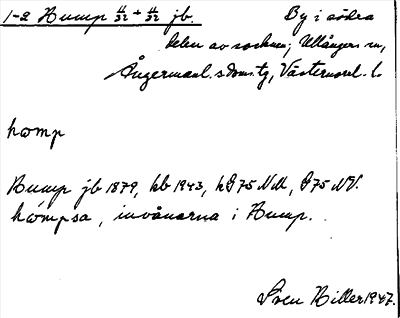 1-2 Hump 11/32 + 11/32 jb. By i södra
delen av socknen; Ullångers sn,
Ångermanl. s. doms.tg, Västernorrl. l.
homp
Hump jb 1879, kb 1943, hd 75 NM, d 75 NV.
hómpsa, invånarna i Hump.
Sven Hiller 1947.